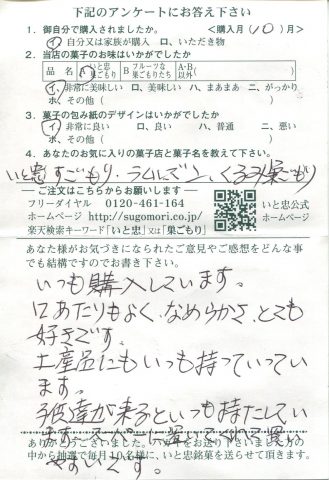 下記のアンケートにお答え下さい
1. 御自分で購入されましたか。 <購入月(10)月>
イ、自分又は家族が購入 ロ、いただき物
2. 当店の菓子のお味はいかがでしたか
品 名 A いと忠巣ごもり B フルーツな巣ごもりたち A・B以外( )
イ、非常に美味しい ロ、美味しい ハ、まあまあ ニ、がっかり
ホ、その他( )
3. 菓子の包み紙のデザインはいかがでしたか
イ、非常に良い ロ、良い ハ、普通 ニ、悪い
ホ、その他( )
4. あなたのお気に入りの菓子店と菓子名を教えて下さい。
いと忠すごもり、ラムレーズン、くるみ巣ごもり
ご注文はこちらからお願いします
フリーダイヤル 0120-461-164
ホームページ http://sugomori.co.jp/
楽天検索キーワード「いと忠」又は「巣ごもり」
いと忠公式ホームページ
あなた様がお気づきになられたご意見やご感想をどんな事
でも結構ですのでお書き下さい。
いつも購入しています。
口あたりもよく、なめらかさ、とても
好きです。
土産品にもいつも持っていってい
ます。
子供達が来るといつも持たしてい
ます。スーパーに置いてくれて買い
やすいです。
ありがとうございました。ハガキをお送り下さいました方の
中から抽選で毎月10名様に、いと忠銘菓を送らせて頂きます。